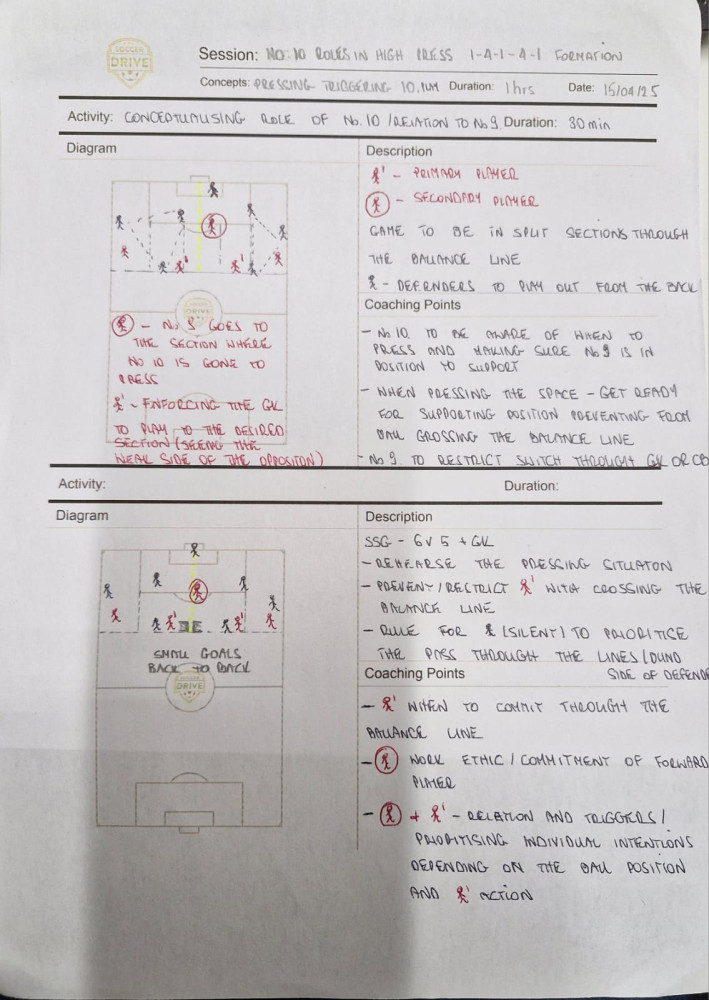 SOCCER
DRIVE
Session: NO:10 ROLES IN HIGH PRESS 1-4-1-4-1 FORMATION
Concepts: PRESSING TRIGGERING Duration: 1hrs Date: 15/04/25
Activity: CONCEPTUALISING ROLE OF No. 10 /RELATION TO No 9. Duration: 30 min
Diagram
Description
- PRIMARY PLAYER
- SECONDARY PLAYER
GAME TO BE IN SPLIT SECTIONS THROUGH
THE BALLANCE LINE
- DEFENDERS TO PLAY OUT FROM THE BACK
- No 9 GOES TO
THE SECTION WHERE
NO 10 IS GONE TO
PRESS
- ENFORCING THE GK
TO PLAY TO THE DESIRED
SECTION (SEEING THE
WEAK SIDE OF THE OPPOSITON)
Coaching Points
- No 10. TO BE AWARE OF WHEN TO
PRESS AND MAKING SURE No 9 IS IN
POSITION TO SUPPORT
- WHEN PRESSING THE SPACE - GET READY
FOR SUPPORTING POSITION PREVENTING FROM
BALL CROSSING THE BALANCE LINE
- No 9. TO RESTRICT SWITCH THROUGH GK OR CB
Activity: Duration:
Diagram
SMALL GOALS
BACK TO BACK
DRIVE
Description
SSG - 6V5 + GK
- REHEARSE THE PRESSING SITUATON
- PREVENT/RESTRICT WITH CROSSING THE
BALANCE LINE
- RULE FOR (SILENT) TO PRIORITISE
THE PASS THROUGH THE LINES /
SIDE OF DEFENDE
Coaching Points
- WHEN TO COMMIT THROUGH THE
BALLANCE LINE
- WORK ETHIC / COMMITMENT OF FORWARD
PLAYER
- + - RELATION AND TRIGGERS /
PRIORITISING INDIVIDUAL INTENTIONS
DEPENDING ON THE BALL POSITION
AND ACTION